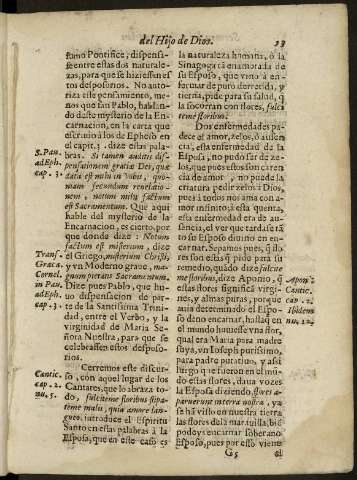 del Hijo de Dios. 53
sumo Pontifice, dispensas-
se entre estas dos naturale-
zas, para que se hiziessen es-
tos desposorios. No anto-
riza este pensamiento, me-
nos que san Pablo, hablan-
do deste mysterio de la En-
carnacion, en la carta que
escriuio à los de Epheso en
el capit. 3. dize estas pala-
S. Pau. bras. Si tamen auditis dis-
ad Eph. pensationem gratiæ Dei, quæ
cap. 3. data est mihi in vobis, quo-
niam secundum reuelatio-
nem, notum mihi factum
est Sacramentum. Que aqui
hable del mysterio de la
Encarnacion, es cierto, por
que donde dize: Notum
factum est misterium, dize
Transs. el Griego, misterium Christi,
Græca. y vn Moderno graue, ma-
Cornel. gnum pietatis Sacramentum.
in Pau. Dize pues Pablo, que hu-
ad Eph. uo dispensacion de par-
cap. 3. te de la Santissima Trini-
dad, entre el Verbo, y la
virginidad de Maria Se-
ñora Nuestra, para que se
celebrassen estos desposo-
rios.
Cerremos este discur-
Cantic. so, con aquel lugar de los
cap. 2. Cantares, que lo abraza to-
nu. 5. do, fulcite me floribus stipa-
te me malis, quia amore lan-
gueo. introduce el Espiritu
Santo en estas palabras à la
Esposa, que en este caso es
la naturaleza humana, ò la
Sinagoga tã enamorada de
su Esposo, que vino à en-
fermar de puro derretida, y
tierna, pide para su salud, q̃
la socorran con flores, fulci
te me floribus.
Dos enfermedades pa-
dece el amor, zelos, ò ausen-
cia, esta enfermedad de la
Esposa, no pudo ser de ze-
los, que pues estos son caren
cia de amor, no puede la
criatura pedir zelos à Dios,
pues à todos nos ama con a-
mor infinito; à esta quenta,
esta enfermedad era de au-
sencia, el ver que tarde se tã
to su Esposo diuino en en-
carnar. Sepamos pues, q̃ flo-
res son estas q̃ pide para su
remedio, quãdo dize fulcite
me floribus, dize Aponio, q̃ Apon.
estas flores significã virgi- Cantic.
nes, y almas puras, porque cap. 2.
auia determinado el Espo- Ibidem
so deno encarnar, hasta q̃ en num. 12.
el mundo huuiesse vna flor,
qual era Maria para madre
suya, vn Ioseph purissimo,
para padre putatiuo, y assi
luego que fueron en el mũ-
do estas flores, daua vozes
la Esposa diziendo, flores a-
paruerunt in terra nostra, ya
se hã visto en nuestra tierra
las flores de la marauilla, biẽ
podeys encarnar soberano
Esposo, pues por esso viene
G5 el